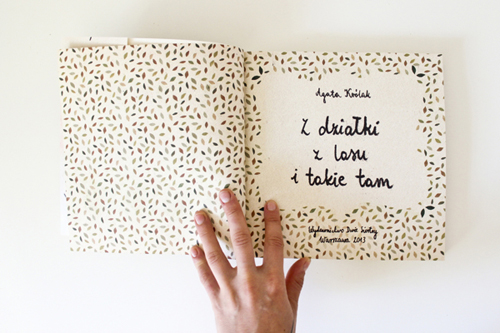 Agata Królak
Z działki
z lasu
i takie tam
Wydawnictwo Dwie Siostry
Warszawa 2013